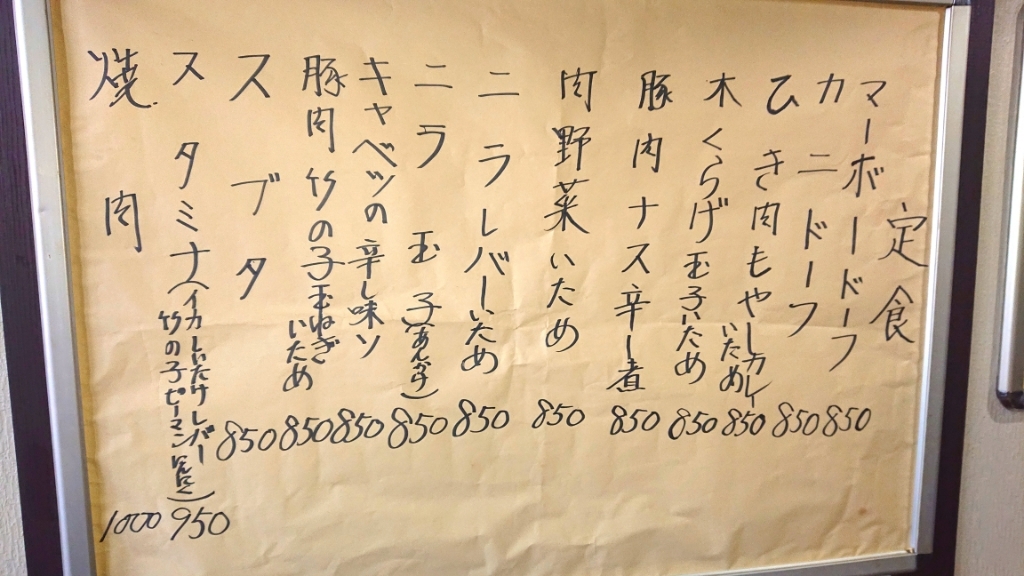 定食
マーボードーフ 850
カニドーフ 850
ひき肉もやしカレーいため 850
木くらげ玉子いため 850
豚肉ナス辛し煮 850
肉野菜いため 850
ニラレバーいため 850
ニラ玉子(あんかけ) 850
キャベツの辛し味ソ 850
豚肉竹の子玉ねぎいため 850
スブタ 850
スタミナ(イカしいたけレバー竹の子ピーマンにんにく) 950
焼肉 1000